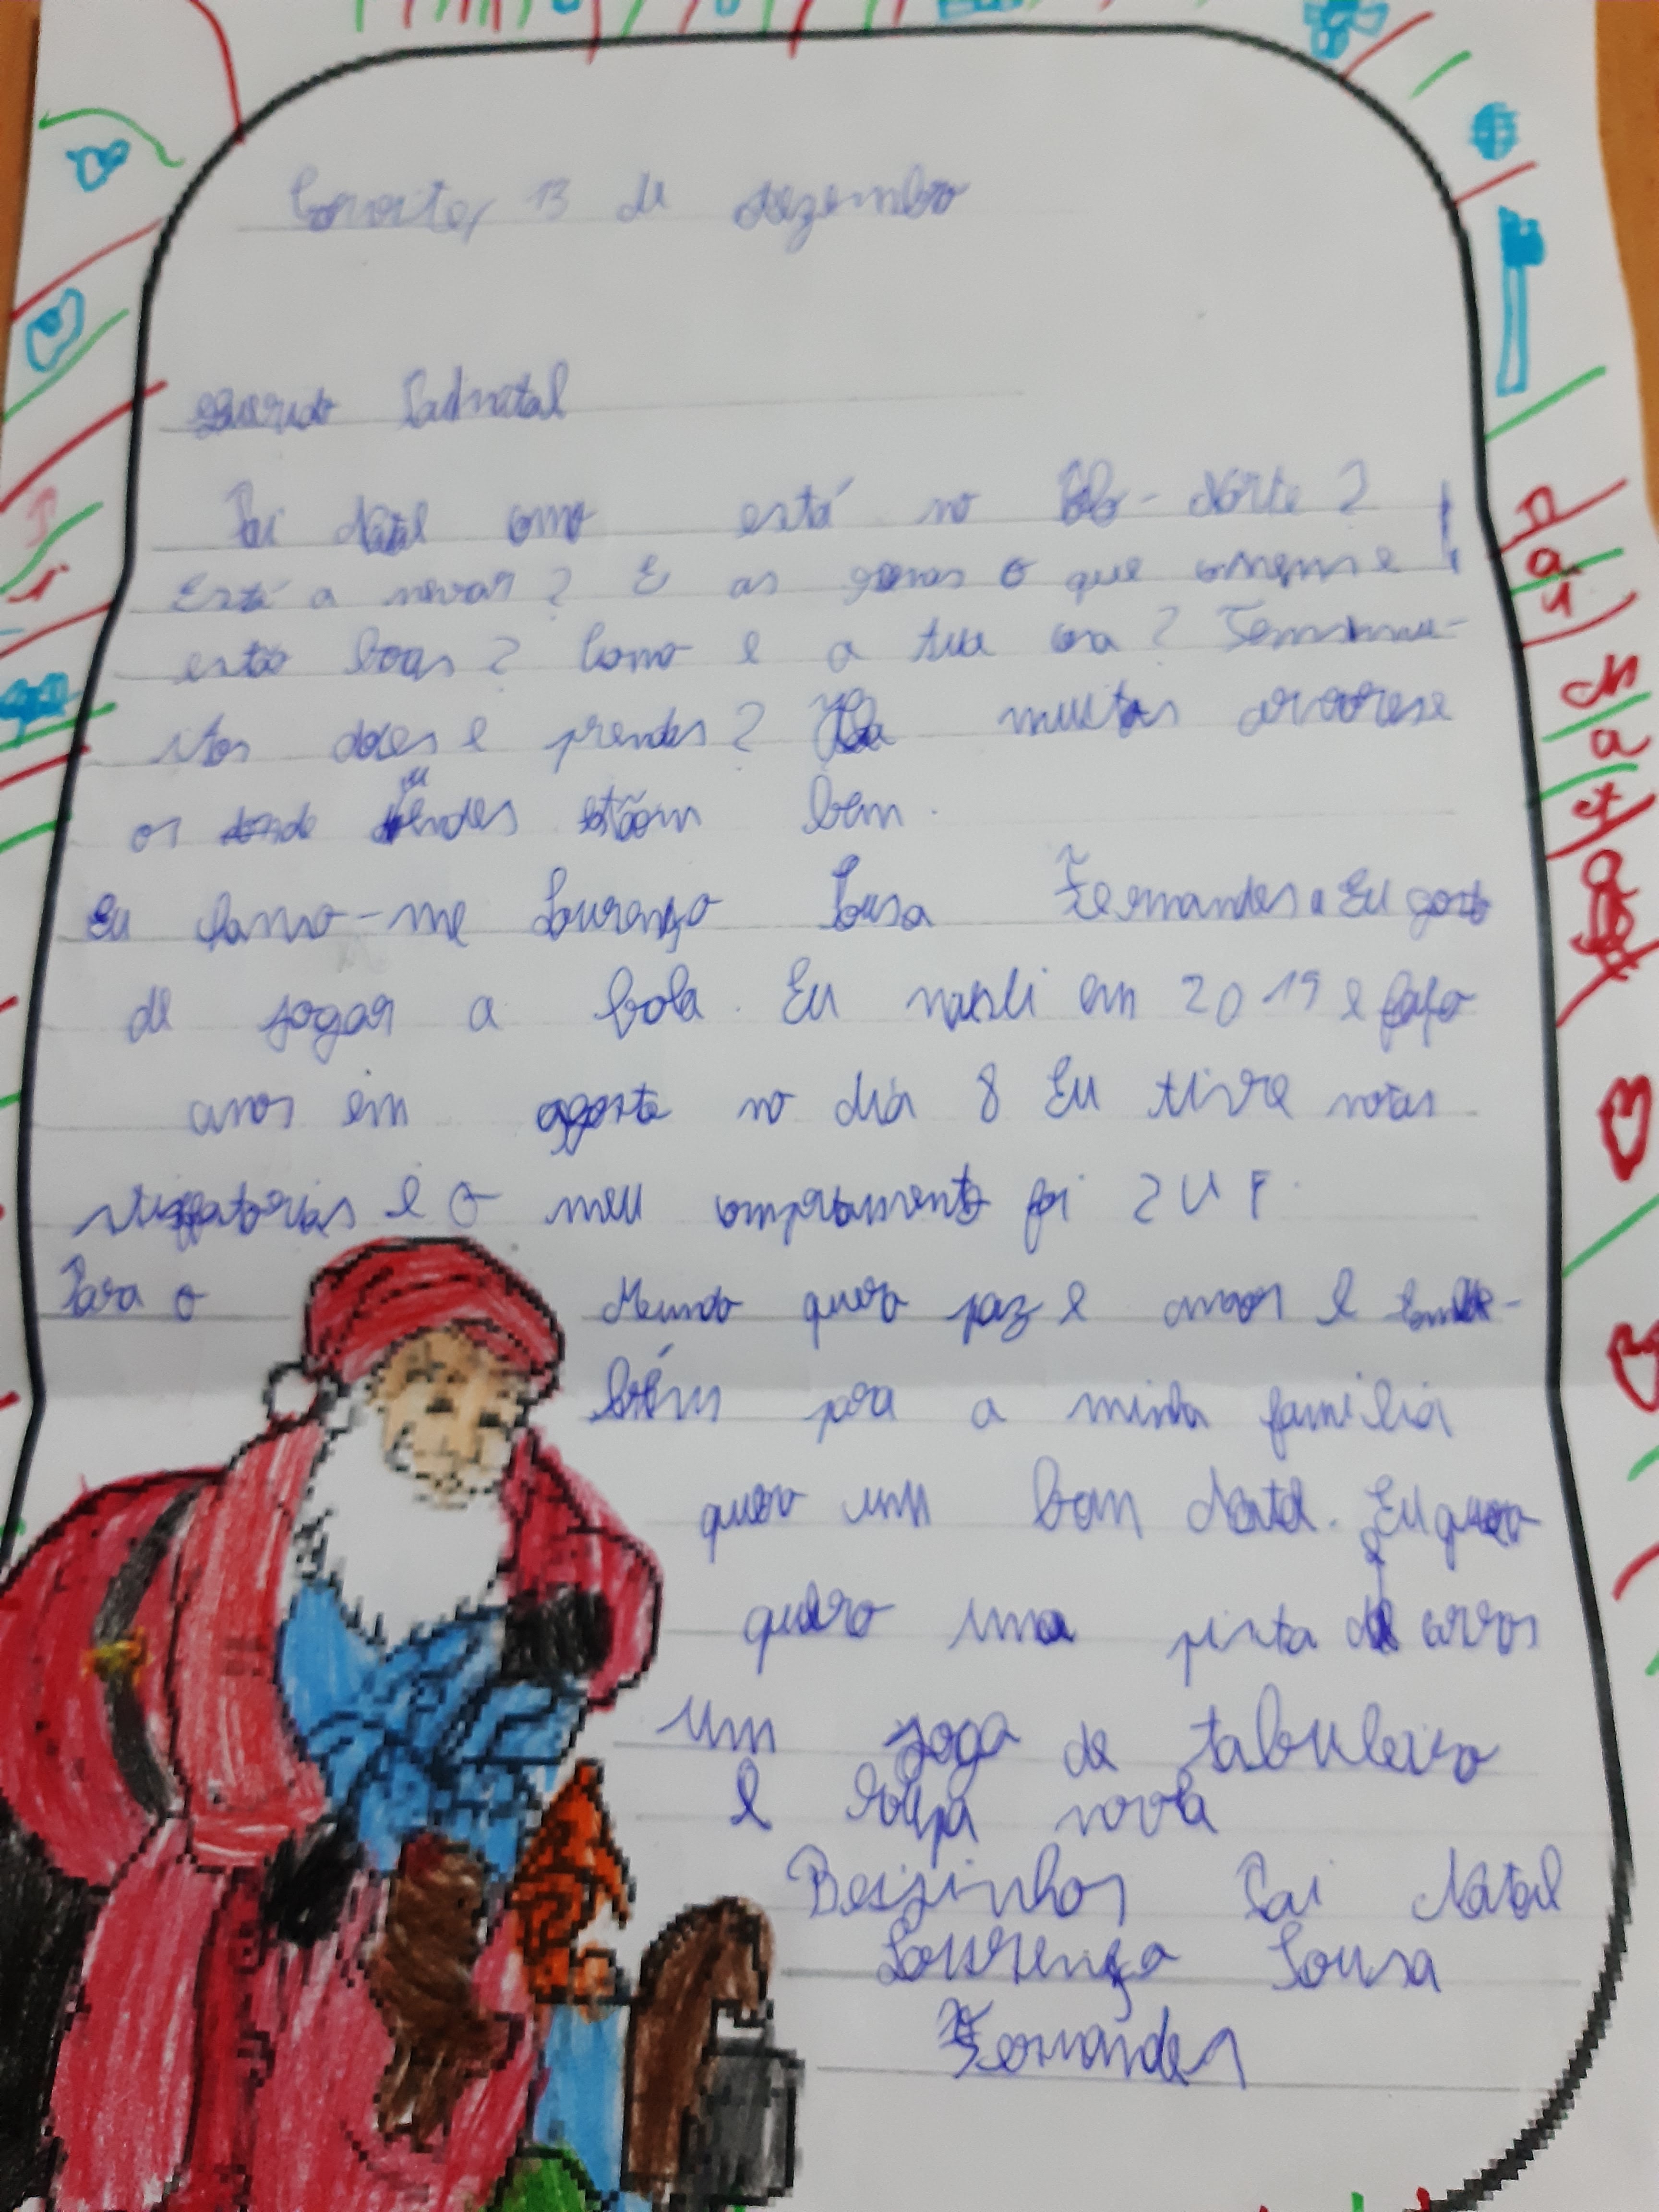 13 de dezembro
Querido Painatal
Pai Natal como está no Polo-Norte?
Está a nevar? E as renas o que comem e
estão boas? Como e a tua casa? Tens mui-
tos doces e prendas? Há muitas arvores e
os duendes estãom bem.
Eu chamo-me Lourenço Sousa Fernandes. Eu gosto
de jogar a bola. Eu nasci em 2019 e faço
anos em agosto no dia 8 Eu tive notas
e o meu comprtamento foi
Para o Mundo quero paz e amor e tam-
bém para a minha familia
quero um bom Natal. Eu quero
quero uma pista de carros
um joga de tabuleiro
e roupa nova
Beizinhos Pai Natal
Lourenço Sousa
Fernandes
Pai
Natal